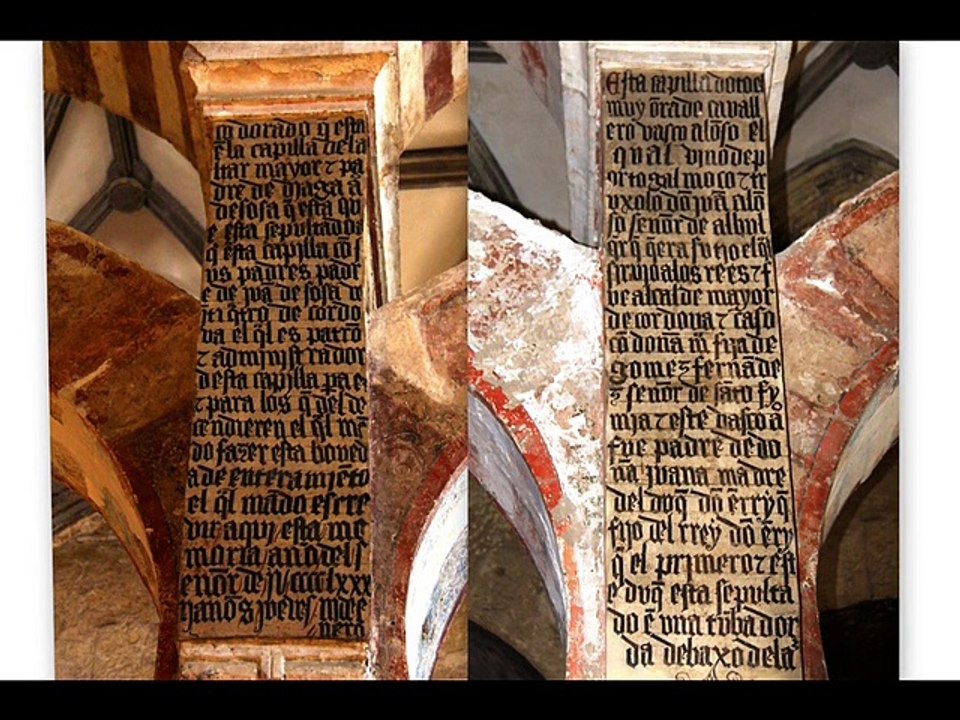 co dorado q̃ esta
ẽ la capilla del a
ltar mayor ⁊ pa
dre de diago a
de sosa q̃ esta
e esta sepultado
q̃ esta capilla cõ
us padres padr
e de jua de sosa
de cordo
va el q̃l es patrõ
⁊ administrador
desta capilla pa e
⁊ para los q̃ del de
cendieren el q̃l mã
do fazer esta boved
a de enterramiẽto
el q̃l mãdo escre
vir aqui esta me
moria año del s
enor de
años jueves
nero
Esta capilla doto el
muy õrade cavall
ero vasco alõso el
qual vino de p
ortogal moço ⁊ tr
uxolo dõ juã alõ
so señor de albul
q̃rq̃ q̃ era su tio el q̃l
sirvio a los rees ⁊ f
ue alcalde mayor
de cordova ⁊ caso
cõ doña fija de
gomez fernãde
z señor de sãto fy
mia ⁊ este vasco a
fue padre de do
ña juana madre
del duq̃ dõ ẽrryq̃
fijo del rrey dõ ẽry
q̃ el primero ⁊ est
e duq̃ esta sepulta
do ẽ una tũba dor
da debaxo dela